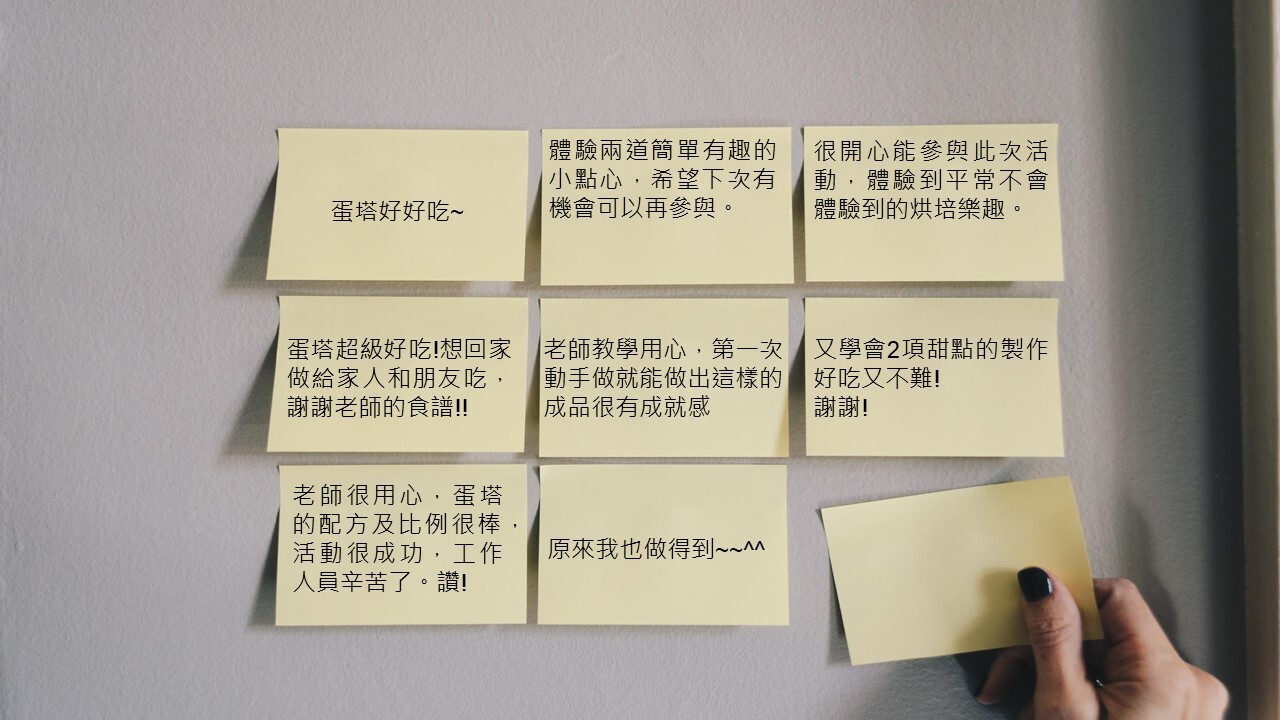 蛋塔好好吃~
體驗兩道簡單有趣的
小點心，希望下次有
機會可以再參與。
很開心能參與此次活
動，體驗到平常不會
體驗到的烘培樂趣。
蛋塔超級好吃!想回家
做給家人和朋友吃，
謝謝老師的食譜!!
老師教學用心，第一次
動手做就能做出這樣的
成品很有成就感
又學會2項甜點的製作
好吃又不難!
謝謝!
老師很用心，蛋塔
的配方及比例很棒，
活動很成功，工作
人員辛苦了。讚!
原來我也做得到~~^^